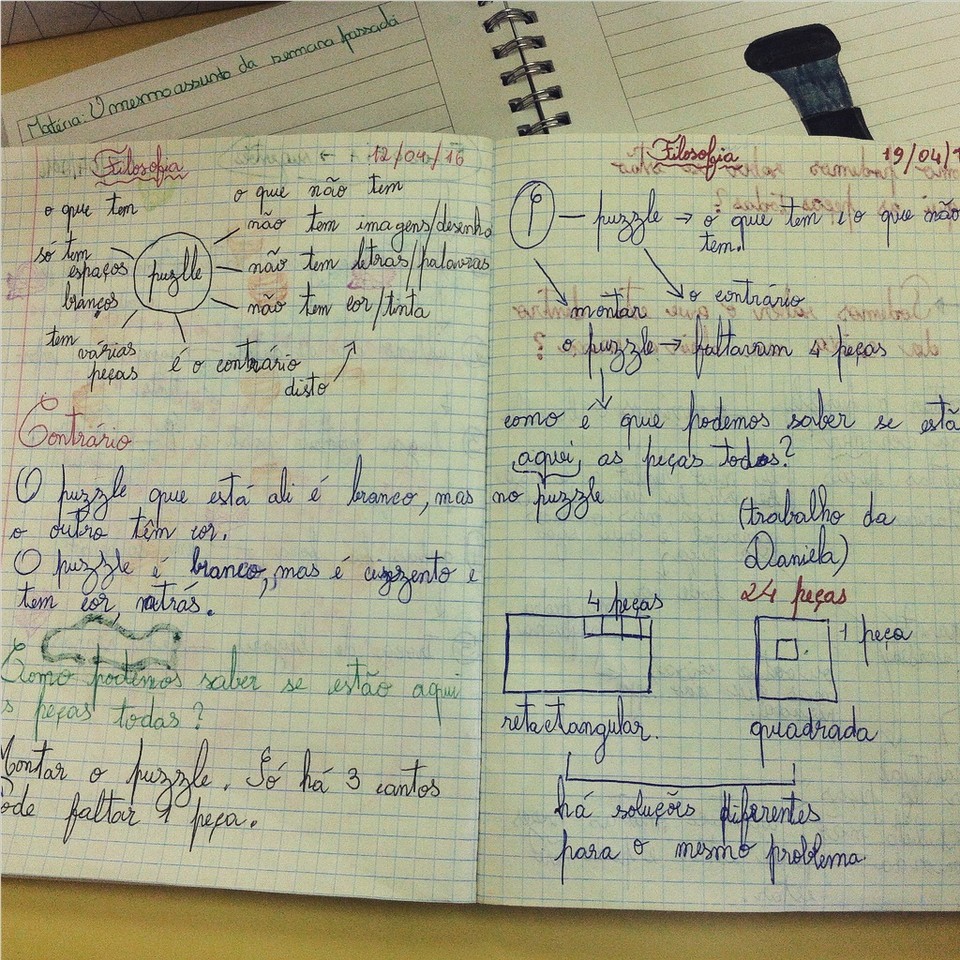 Matéria: O mesmo assunto da semana passada
Filosofia 12/04/16
o que tem
o que não tem
só tem
espaços
brancos
puzlle
não tem imagens/desenho
não tem letras/palavras
não tem cor/tinta
tem várias
peças
é o contrário
disto
Contrário
O puzzle que está ali é branco, mas
o outro têm cor.
O puzzle é branco, mas é cuzento e
tem cor, atrás.
Como podemos saber se estão aqui
s peças todas?
Montar o puzzle. Só há 3 cantos
Pode faltar 1 peça.
Filosofia 19/04/1
P — puzzle → o que tem e o que não
tem.
montar
o contrário
o puzzle → faltavam 4 peças
como é que podemos saber se estã
aqui, as peças todas?
no puzzle
(trabalho da
Daniela)
4 peças
24 peças
1 peça
retactangular.
quadrada
há soluções diferentes
para o mesmo problema.